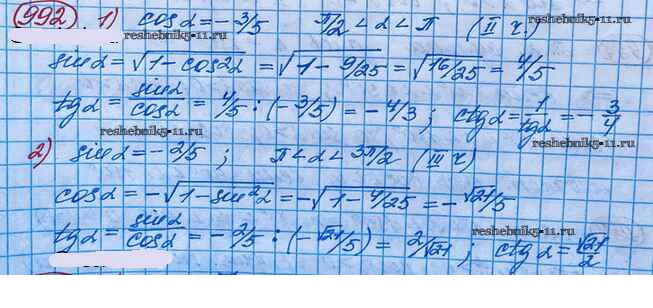 992. 1) cos α = - 3/5 π/2 < α < π (II ч.)
reshebnik5-11.ru reshebnik5-11.ru
sin α = √(1 - cos²α) = √(1 - 9/25) = √(16/25) = 4/5
tg α = sin α / cos α = 4/5 : (- 3/5) = - 4/3 ; ctg α = 1/tg α = - 3/4
reshebnik5-11.ru reshebnik5-11.ru
2) sin α = - 2/5 ; π < α < 3π/2 (III ч)
reshebnik5-11.ru
cos α = - √(1 - sin²α) = - √(1 - 4/25) = - √21/5
reshebnik5-11.ru
tg α = sin α / cos α = - 2/5 : (- √21/5) = 2/√21 ; ctg α = √21/2
reshebnik5-11.ru reshebnik5-11.ru